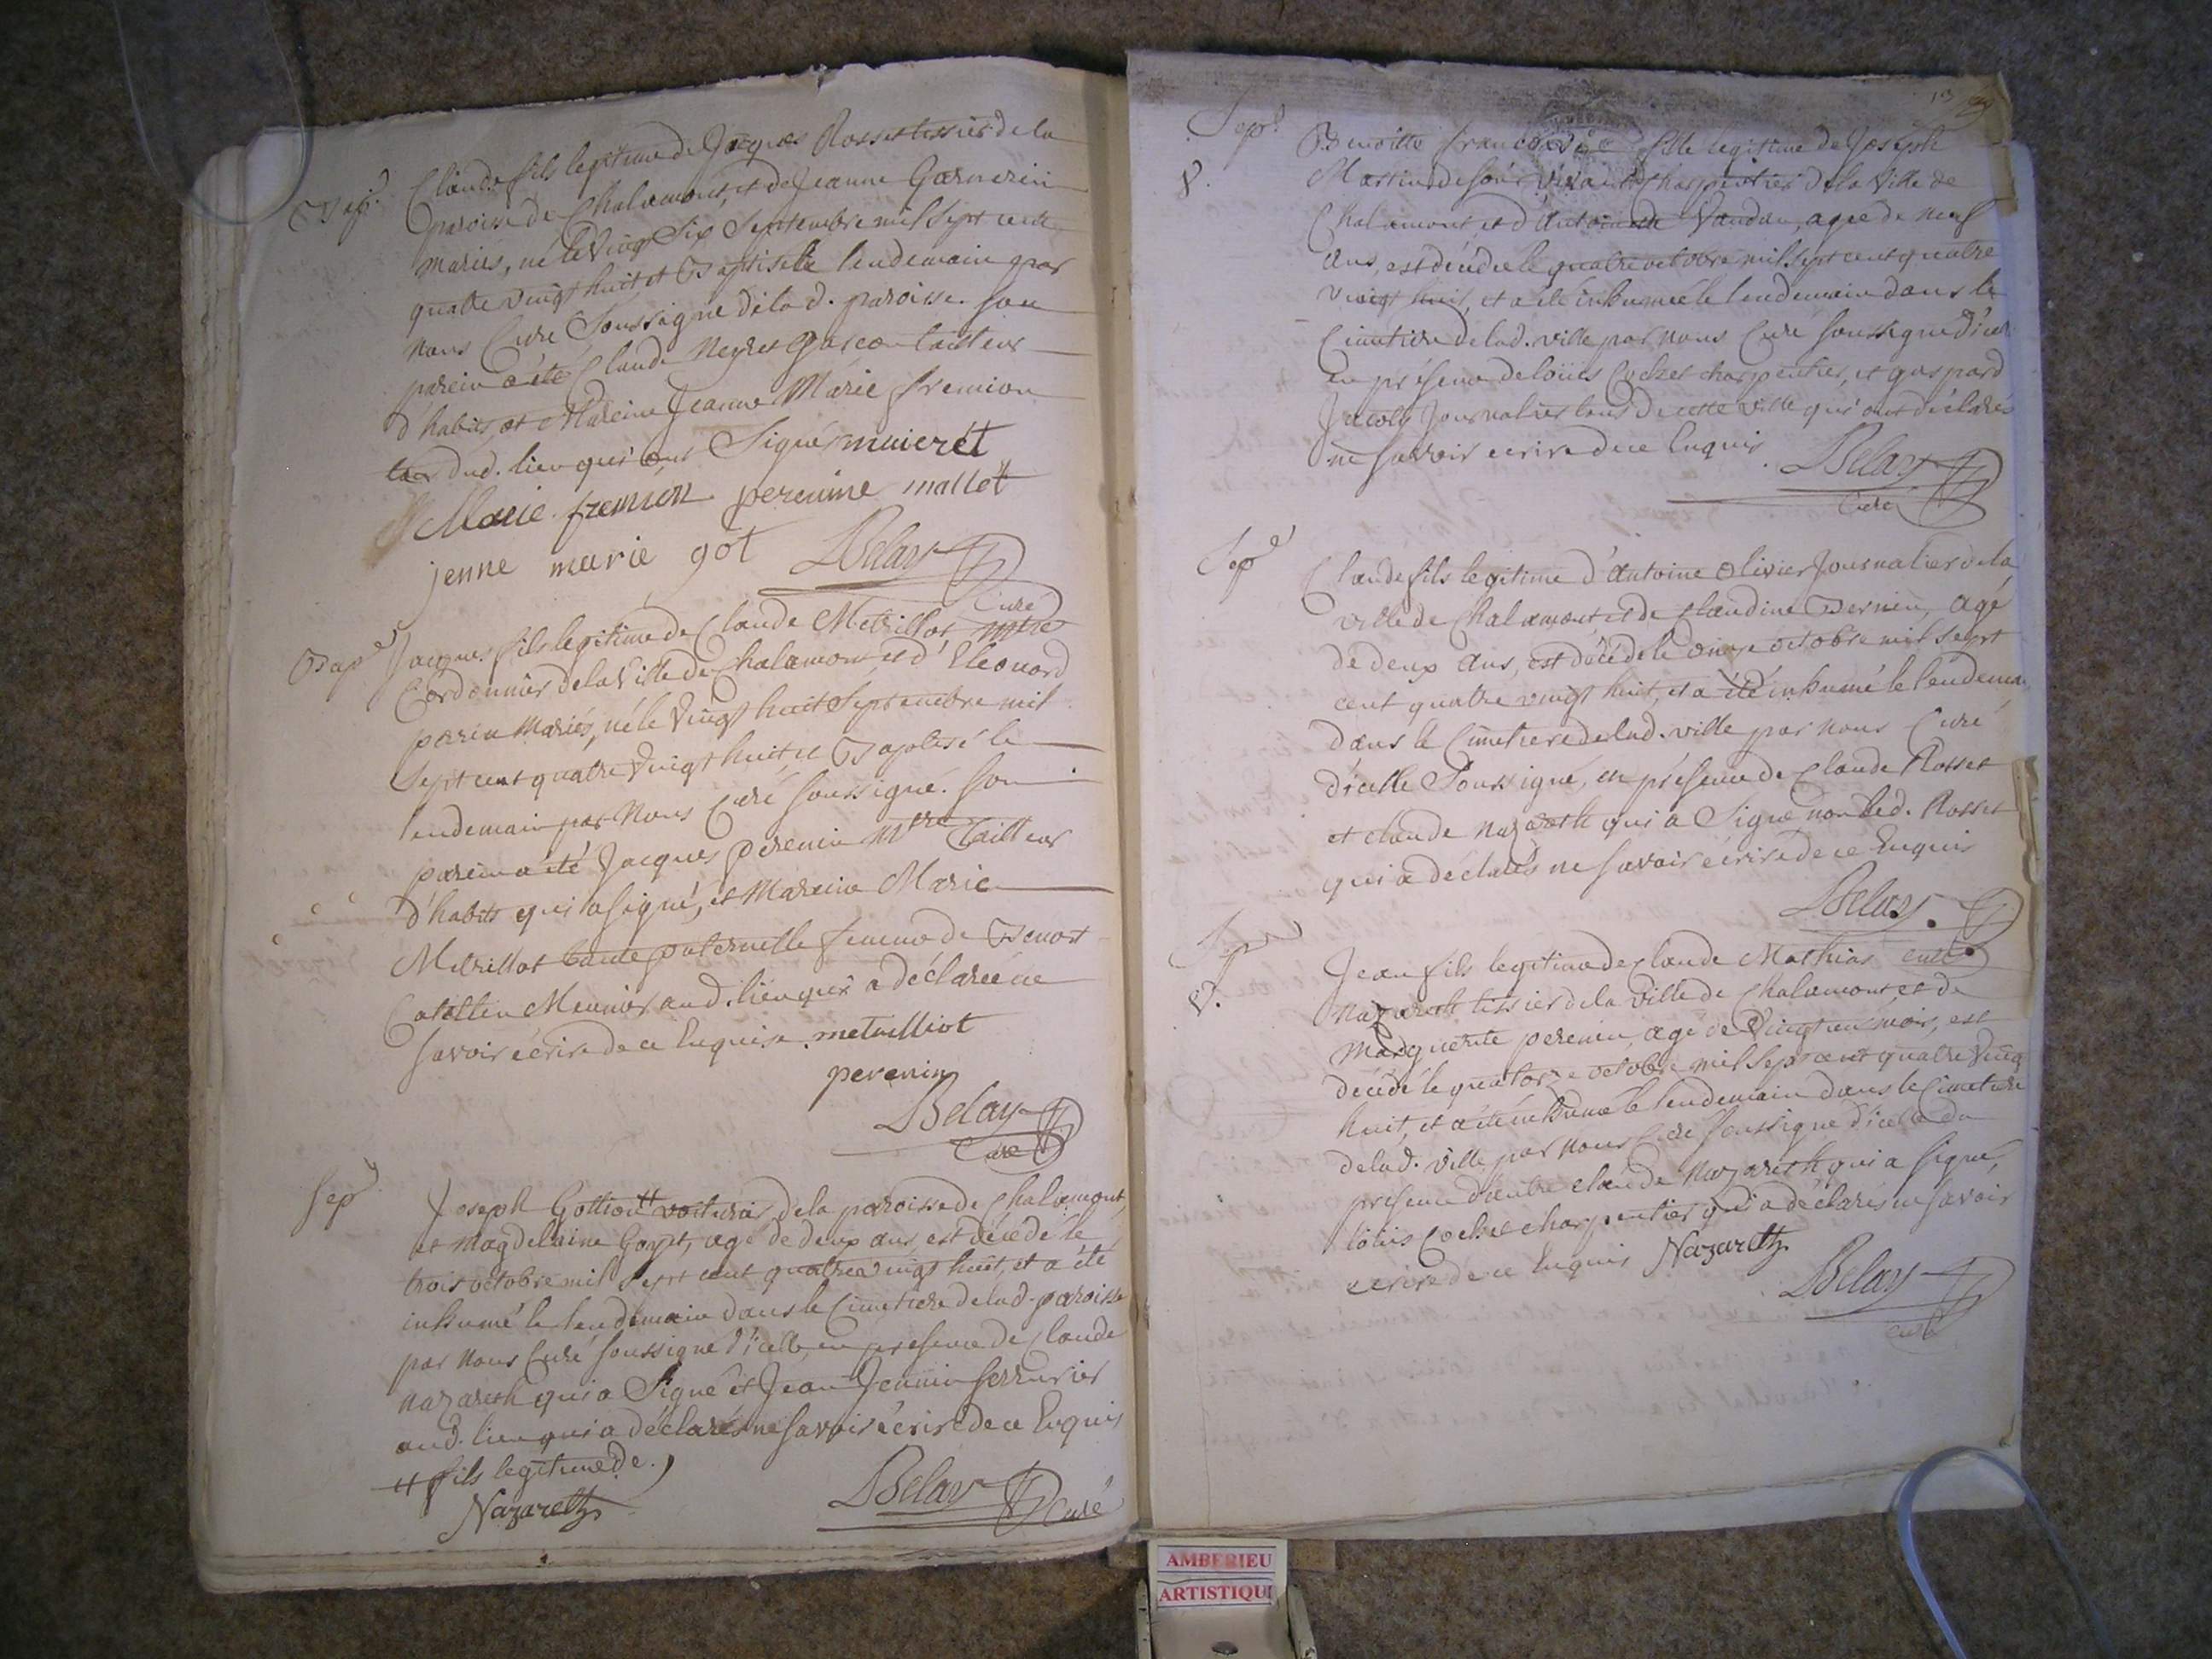 Bap.e Claude fils legitime de Jacques Rosset tissier de la
paroisse de Chalamont, et de Jeanne Garnerin
mariés, né le vingt six Septembre mil sept cent
quatre vingt huit et Baptisé le lendemain par
nous Curé Soussigné de lad. paroisse. son
parein a été Claude Meyret garcon tailleur
d'habits, et Mareine Jeanne Marie fremion
dud. lieu qui ont Signé muierét
Marie fremion perenine mallet
jenne marie got LBelay
Curé
Bap.e Jacques fils legitime de Claude Metrillot mtre
Cordonnier de la Ville de Chalamont et d'Eléonord
perein Mariés, né le vingt huit Septembre mil
Sept cent quatre vingt huit et Baptisé le
lendemain par Nous Curé soussigné. son
parein a été Jacques perenin Mtre Tailleur
d'habits qui a signé, et Mareine Marie
Metrillot tante paternelle femme de Benoit
Catellin Meunier aud. lieu qui a déclarée ne
savoir écrire de ce Enquise. metuilliot
perenin
LBelay
Curé
Sep.e Joseph Gottion tt voiturier de la paroisse de Chalamont,
et Magdelaine Goyet, agé de deux ans est décédé le
trois octobre mil Sept cent quatre vingt huit, et a été
inhumé le lendemain dans le Cimetiere de lad. paroisse
par Nous Curé soussigné d'icelle, en presence de Claude
Nazareth qui a Signé et Jean Jennin serrurier
aud. lieu qui a déclarés ne savoir écrire de ce Enquis
tt fils legitime de.
Nazareth LBelay Curé
13
Sep.e Benoitte françoise fille legitime de Joseph
V. Martin de son vivant Charpentier de la Ville de
Chalamont, et d'Antoinette Vaudan, agée de neuf
ans, est décédée le quatre octobre mil sept cent quatre
vingt huit, et a été inhumée le lendemain dans le
Cimetiere de lad. ville par nous Curé soussigné d'icelle
en présence de loüis Cochet charpentier, et gaspard
Jacoly Journalier tous de cette ville qui ont déclarés
ne savoir ecrire de ce Enquis. LBelay
Curé
Sep.e Claude fils legitime d'Antoine Olivier Journalier de la
ville de Chalamont et de Claudine Bernin, agé
de deux ans, est décédé le onze octobre mil sept
cent quatre vingt huit, et a été inhumé le lendemain
dans le Cimetiere de lad. ville par nous Curé
d'icelle Soussigné, en présence de Claude Rosset
et claude Nazareth qui a Signé non led. Rosset
qui a déclarés ne savoir écrire de ce Enquis
LBelay.
curé
Sep.e Jean fils legitime de Claude Mathias
V. Nazareth tissier de la ville de Chalamont, et de
Marguerite perenin, agé de vingt un mois, est
décédé le quatorze octobre mil sept cent quatre vingt
huit, et a été inhumé le lendemain dans le Cimetiere
de lad. ville par nous Curé soussigné d'icelle en
presence d'autre claude Nazareth qui a signé,
loüis Cochet charpentier qui a déclarés ne savoir
ecrire de ce Enquis Nazareth
LBelay
curé
AMBERIEU
ARTISTIQU